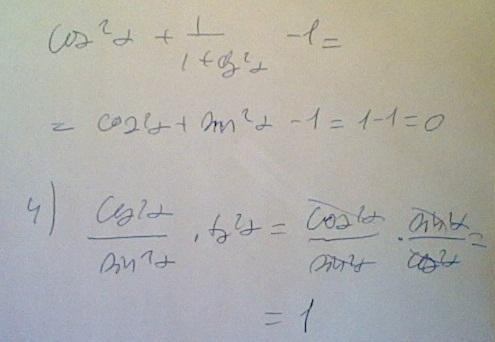 cos²α + 1/(1+ctg²α) -1 =
= cos²α + sin²α -1 = 1-1 = 0
4) cos²α/sin²α · tg²α = cos²α/sin²α · sin²α/cos²α =
= 1